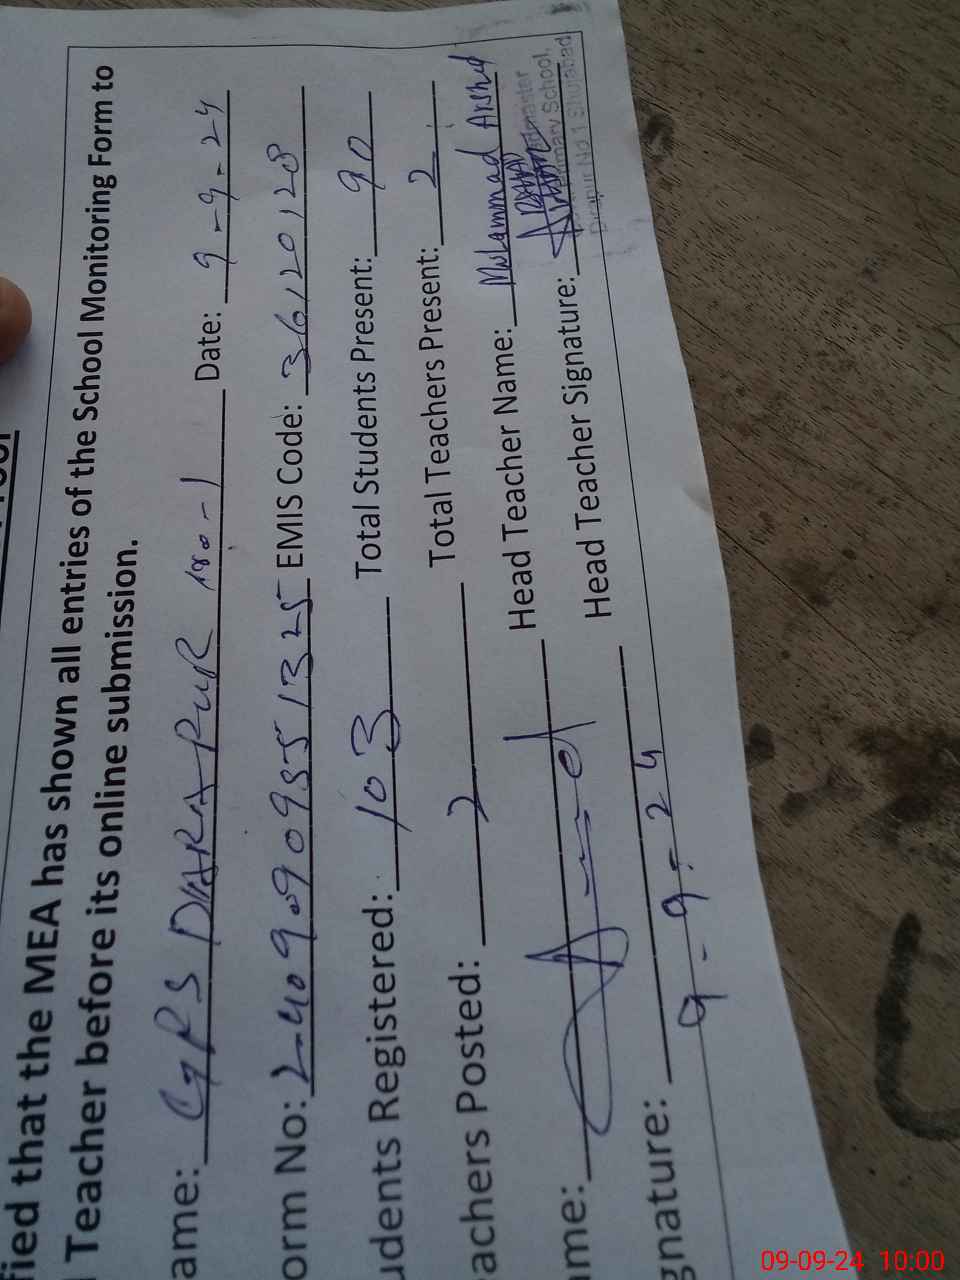 fied that the MEA has shown all entries of the School Monitoring Form to
Teacher before its online submission.
ame: GPS DIARA PUR No-1 Date: 9-9-24
orm No: 24090909551325 EMIS Code: 36120128
udents Registered: 103 Total Students Present: 90
eachers Posted: 2 Total Teachers Present: 2
ame: Head Teacher Name: Muhammad Arshad
gnature: Head Teacher Signature:
9-9-24
master
mary School,
No 1 Shujabad
09-09-24 10:00